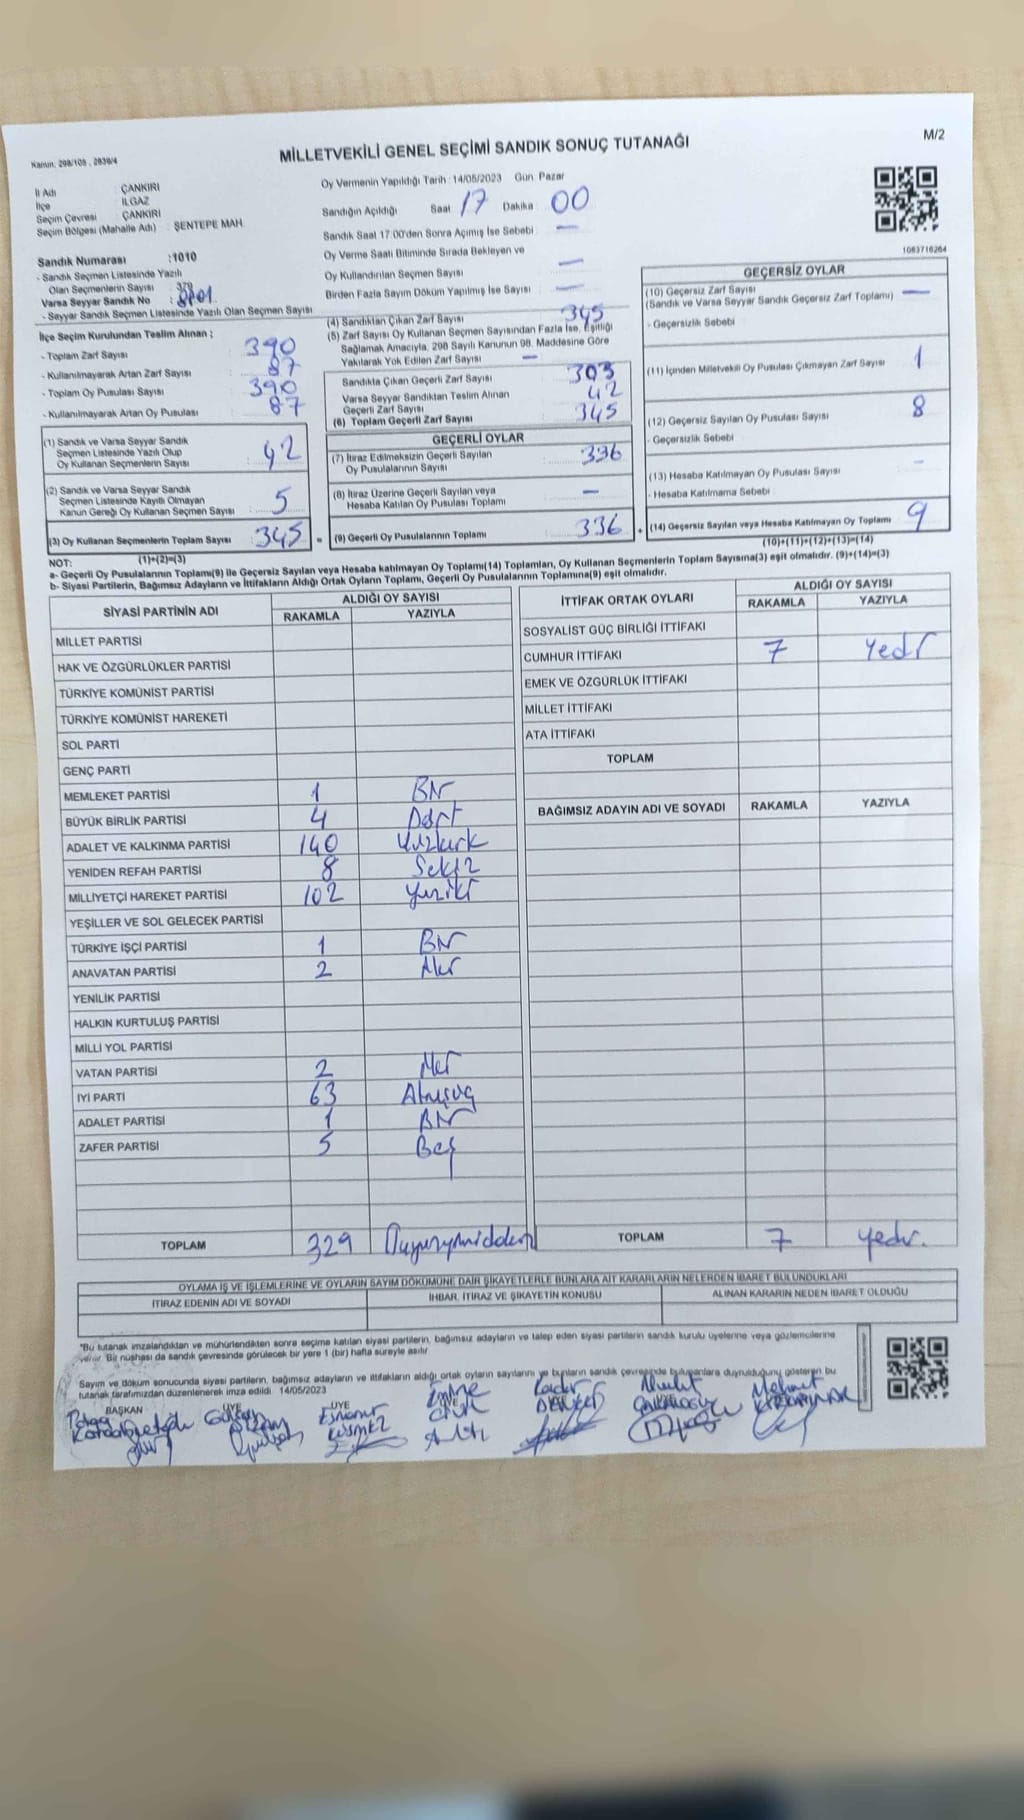 M/2
Kanun, 298/105 , 2839/4
MİLLETVEKİLİ GENEL SEÇİMİ SANDIK SONUÇ TUTANAĞI
İl Adı ÇANKIRI
İlçe ILGAZ
Seçim Çevresi ÇANKIRI
Seçim Bölgesi (Mahalle Adı) ŞENTEPE MAH.
Sandık Numarası :1010
- Sandık Seçmen Listesinde Yazılı
Olan Seçmenlerin Sayısı : 379
Varsa Seyyar Sandık No :
- Seyyar Sandık Seçmen Listesinde Yazılı Olan Seçmen Sayısı
Oy Vermenin Yapıldığı Tarih :14/05/2023 Gün Pazar
Sandığın Açıldığı Saat 17 Dakika 00
Sandık Saat 17:00'den Sonra Açılmış İse Sebebi —
Oy Verme Saati Bitiminde Sırada Bekleyen ve
Oy Kullandırılan Seçmen Sayısı —
Birden Fazla Sayım Döküm Yapılmış İse Sayısı —
1083716264
İlçe Seçim Kurulundan Teslim Alınan ;
- Toplam Zarf Sayısı 390
- Kullanılmayarak Artan Zarf Sayısı 87
- Toplam Oy Pusulası Sayısı 390
- Kullanılmayarak Artan Oy Pusulası 87
(1) Sandık ve Varsa Seyyar Sandık
Seçmen Listesinde Yazılı Olup
Oy Kullanan Seçmenlerin Sayısı 42
(2) Sandık ve Varsa Seyyar Sandık
Seçmen Listesinde Kayıtlı Olmayan
Kanun Gereği Oy Kullanan Seçmen Sayısı 5
(3) Oy Kullanan Seçmenlerin Toplam Sayısı 345
(1)+(2)=(3)
(4) Sandıktan Çıkan Zarf Sayısı 345
(5) Zarf Sayısı Oy Kullanan Seçmen Sayısından Fazla İse, Eşitliği
Sağlamak Amacıyla, 298 Sayılı Kanunun 98. Maddesine Göre
Yakılarak Yok Edilen Zarf Sayısı —
Sandıkta Çıkan Geçerli Zarf Sayısı 303
Varsa Seyyar Sandıktan Teslim Alınan
Geçerli Zarf Sayısı 42
(6) Toplam Geçerli Zarf Sayısı 345
GEÇERLİ OYLAR
(7) İtiraz Edilmeksizin Geçerli Sayılan
Oy Pusulalarının Sayısı 336
(8) İtiraz Üzerine Geçerli Sayılan veya
Hesaba Katılan Oy Pusulası Toplamı —
= (9) Geçerli Oy Pusulalarının Toplamı 336
GEÇERSİZ OYLAR
(10) Geçersiz Zarf Sayısı —
(Sandık ve Varsa Seyyar Sandık Geçersiz Zarf Toplamı)
- Geçersizlik Sebebi
(11) İçinden Milletvekili Oy Pusulası Çıkmayan Zarf Sayısı 1
(12) Geçersiz Sayılan Oy Pusulası Sayısı 8
- Geçersizlik Sebebi
(13) Hesaba Katılmayan Oy Pusulası Sayısı -
- Hesaba Katılmama Sebebi
+ (14) Geçersiz Sayılan veya Hesaba Katılmayan Oy Toplamı 9
(10)+(11)+(12)+(13)=(14)
NOT:
a- Geçerli Oy Pusulalarının Toplamı(9) ile Geçersiz Sayılan veya Hesaba Katılmayan Oy Toplamı(14) Toplamları, Oy Kullanan Seçmenlerin Toplam Sayısına(3) eşit olmalıdır. (9)+(14)=(3)
b- Siyasi Partilerin, Bağımsız Adayların ve İttifakların Aldığı Ortak Oyların Toplamı, Geçerli Oy Pusulalarının Toplamına(9) eşit olmalıdır.
SİYASİ PARTİNİN ADI ALDIĞI OY SAYISI
RAKAMLA YAZIYLA
MİLLET PARTİSİ
HAK VE ÖZGÜRLÜKLER PARTİSİ
TÜRKİYE KOMÜNİST PARTİSİ
TÜRKİYE KOMÜNİST HAREKETİ
SOL PARTİ
GENÇ PARTİ
MEMLEKET PARTİSİ 1 Bir
BÜYÜK BİRLİK PARTİSİ 4 Dört
ADALET VE KALKINMA PARTİSİ 140 Yüzkırk
YENİDEN REFAH PARTİSİ 8 Sekiz
MİLLİYETÇİ HAREKET PARTİSİ 102 Yüziki
YEŞİLLER VE SOL GELECEK PARTİSİ
TÜRKİYE İŞÇİ PARTİSİ 1 Bir
ANAVATAN PARTİSİ 2
YENİLİK PARTİSİ
HALKIN KURTULUŞ PARTİSİ
MİLLİ YOL PARTİSİ
VATAN PARTİSİ 2
İYİ PARTİ 63 Altmışüç
ADALET PARTİSİ 1 Bir
ZAFER PARTİSİ 5 Beş
TOPLAM 329
İTTİFAK ORTAK OYLARI ALDIĞI OY SAYISI
RAKAMLA YAZIYLA
SOSYALİST GÜÇ BİRLİĞİ İTTİFAKI
CUMHUR İTTİFAKI 7 Yedi
EMEK VE ÖZGÜRLÜK İTTİFAKI
MİLLET İTTİFAKI
ATA İTTİFAKI
TOPLAM
BAĞIMSIZ ADAYIN ADI VE SOYADI RAKAMLA YAZIYLA
TOPLAM 7 Yedi.
OYLAMA İŞ VE İŞLEMLERİNE VE OYLARIN SAYIM DÖKÜMÜNE DAİR ŞİKAYETLERLE BUNLARA AİT KARARLARIN NELERDEN İBARET BULUNDUKLARI
İTİRAZ EDENİN ADI VE SOYADI İHBAR, İTİRAZ VE ŞİKAYETİN KONUSU ALINAN KARARIN NEDEN İBARET OLDUĞU
"Bu tutanak imzalandıktan ve mühürlendikten sonra seçime katılan siyasi partilerin, bağımsız adayların ve talep eden siyasi partilerin sandık kurulu üyelerine veya gözlemcilerine
verilir. Bir nüshası da sandık çevresinde görülecek bir yere 1 (bir) hafta süreyle asılır.
Sayım ve döküm sonucunda siyasi partilerin, bağımsız adayların ve ittifakların aldığı ortak oyların sayılarını ve bunların sandık çevresinde bulunanlara duyrulduğunu gösteren bu
tutanak tarafımızdan düzenlenerek imza edildi. 14/05/2023
BAŞKAN ÜYE ÜYE